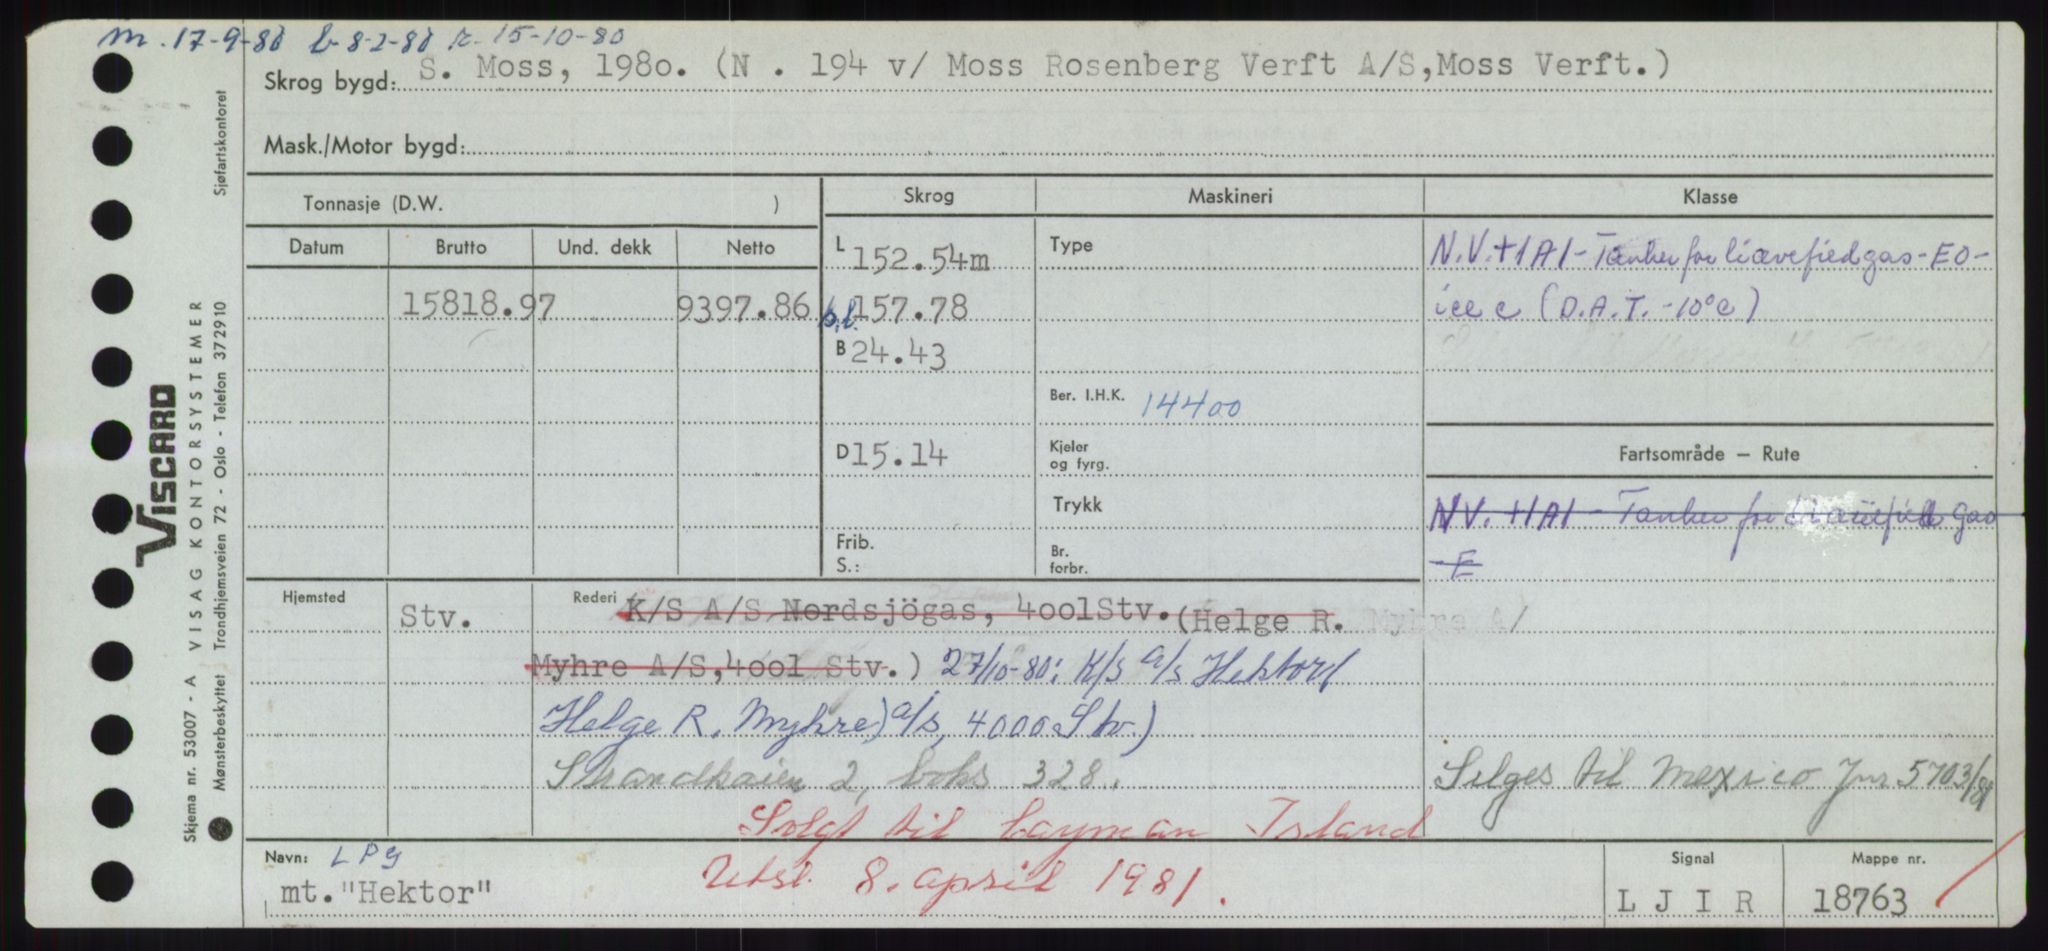 m. 17-9-80 b-8-2-80 r. 15-10-80
Skrog bygd: S. Moss, 198o. (N . 194 v/ Moss Rosenberg Verft A/S,Moss Verft.)
Mask./Motor bygd:
Tonnasje (D.W. ) Skrog Maskineri Klasse
Datum Brutto Und. dekk Netto L 152.54m Type N.V.+1A1-Tanker for liqvefied gas-EO-
15818.97 9397.86 b.l. 157.78 ice c (D.A.T. -10°c)
B 24.43
Ber. I.H.K. 14400
D 15.14 Kjeler og fyrg. Fartsområde — Rute
Trykk N.V. +1A1 - Tanker for Gas
Frib. S.: Br. forbr. -E
Hjemsted Stv. Rederi K/S A/S Nordsjögas, 4oolStv. (Helge R. Myhre A/
Myhre A/S,4ool Stv.) 27/10-80: K/S A/S Hektor (
Helge R. Myhre) A/S, 4000 Stv.)
Strandkaien 2, boks 328. Selges til Mexico Jnr 5703/81
Solgt til Cayman Island
Navn: LPG Utsl. 8. april 1981. Signal Mappe nr.
mt."Hektor" L J I R 18763
VISCARD
Skjema nr. 53007 - A VISAG KONTORSYSTEMER
Mønsterbeskyttet Trondhjemsveien 72 - Oslo - Telefon 372910 Sjøfartskontoret